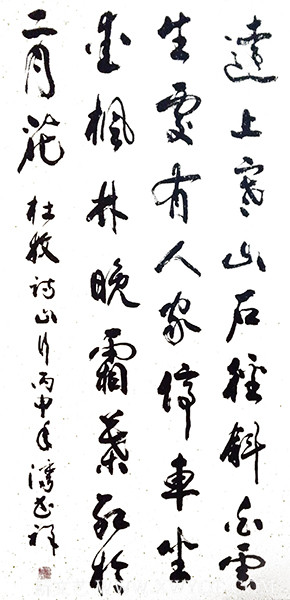 遠上寒山石徑斜白雲
生處有人家停車坐
愛楓林晚霜葉紅於
二月花 杜牧詩山行丙申年